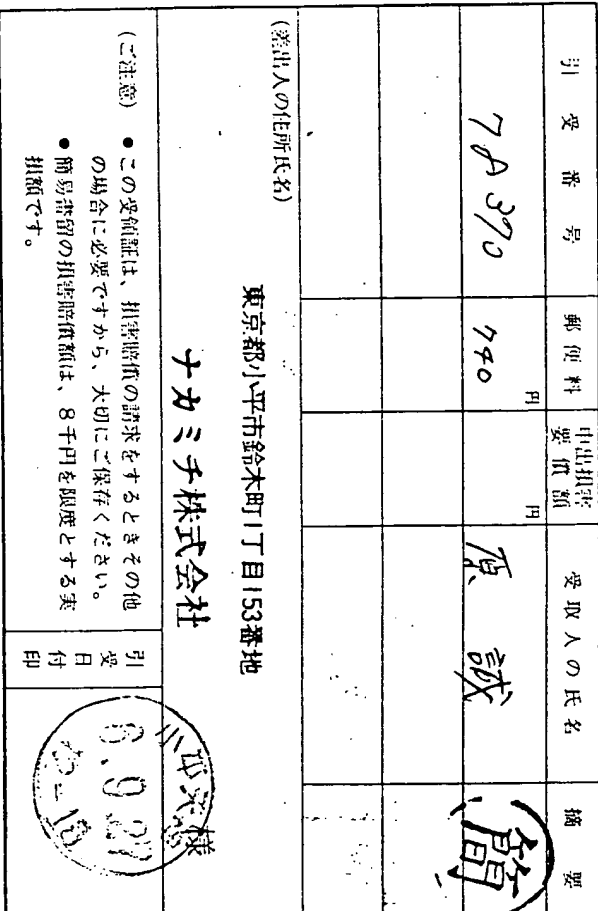 引受番号 郵便料 申出損害要償額 受取人の氏名 摘要
7A390 740円 円 原 誠 簡
(差出人の住所氏名)
東京都小平市鈴木町1丁目153番地
ナカミチ株式会社 様
(ご注意) ● この受領証は、損害賠償の請求をするときその他
の場合に必要ですから、大切にご保存ください。
● 簡易書留の損害賠償額は、8千円を限度とする実
損額です。
引受日付印
6.9.27